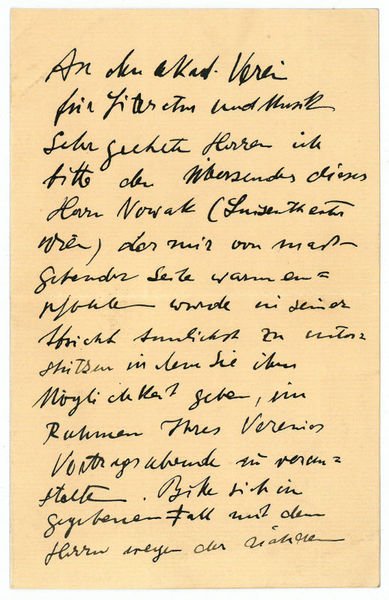 An den akad. Verein
für Literatur und Musik
Sehr geehrte Herren ich
bitte den Übersender dieses
Herrn Nowak (Luisentheater
Wien) der mir von mass-
gebender Seite warm em=
pfohlen wurde in seiner
Absicht tunlichst zu unter=
stützen indem Sie ihm
Möglichkeit geben, im
Rahmen Ihres Vereines
Vortragsabende zu veran=
stalten. Bitte sich in
gegebenem Fall mit dem
Herrn wegen der näheren